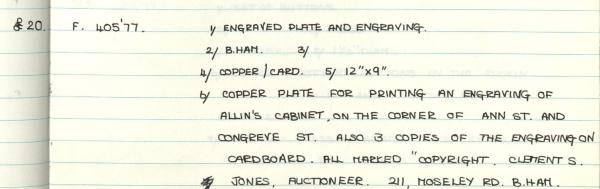 £20. F. 405'77. 1/ ENGRAVED PLATE AND ENGRAVING.
2/ B.HAM. 3/
4/ COPPER / CARD. 5/ 12"x9".
6/ COPPER PLATE FOR PRINTING AN ENGRAVING OF
ALLIN'S CABINET, ON THE CORNER OF ANN ST. AND
CONGREVE ST. ALSO 3 COPIES OF THE ENGRAVING ON
CARDBOARD. ALL MARKED "COPYRIGHT, CLEMENT S.
JONES, AUCTIONEER. 211, MOSELEY RD. B.HAM.